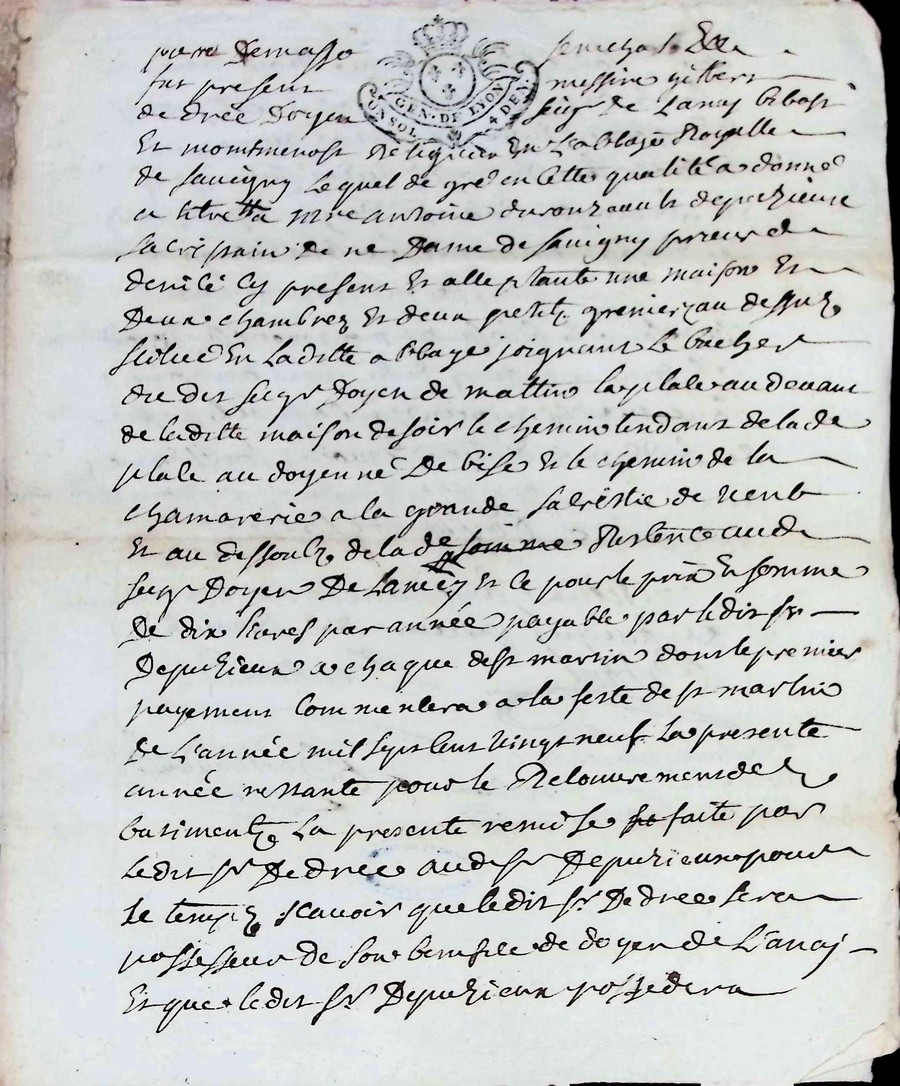 par Demasso senechal &c
GEN. DE LYON
4 DEN.
fut present messire gilbert
de drée Doyen seigr de Lanay bibost
Et montmenost Religieux En L'abbaye Royalle
de savigny Lequel de gré en cette qualité a donné
a titre a mre antoine de puzieux
sacristain de ne Dame de savigny prieur de
cy present Et une maison Et
Deux chambrez Et deux petitz grenierz au dessuz
scitué En La ditte abbaye joignant Le bucher
du dit seigr Doyen de mattin la place au devant
de laditte maison de soir le chemin tendant de la de
place au doyenné De bise Et le chemin de la
chamarerie a la grande sacristie de vent
Et au dessoubz de la de somme aud
seigr Doyen De Lanay Et ce pour le prix Et somme
De dix livres par année payable par le dit sr
Depuzieux a chaque de st martin dont le premier
payement Commencera a la feste de st martin
de L'année mil sept cent vingt neuf La presente
année restante pour le Recouvrement de
batimentz La presente remise faite par
Ledit sr De drée aud sr Depuzieux pour
le tempz scavoir que ledit sr De drée sera
possesseur de son benefice de doyen de L'anay
Et que ledit sr Depuzieux possedera